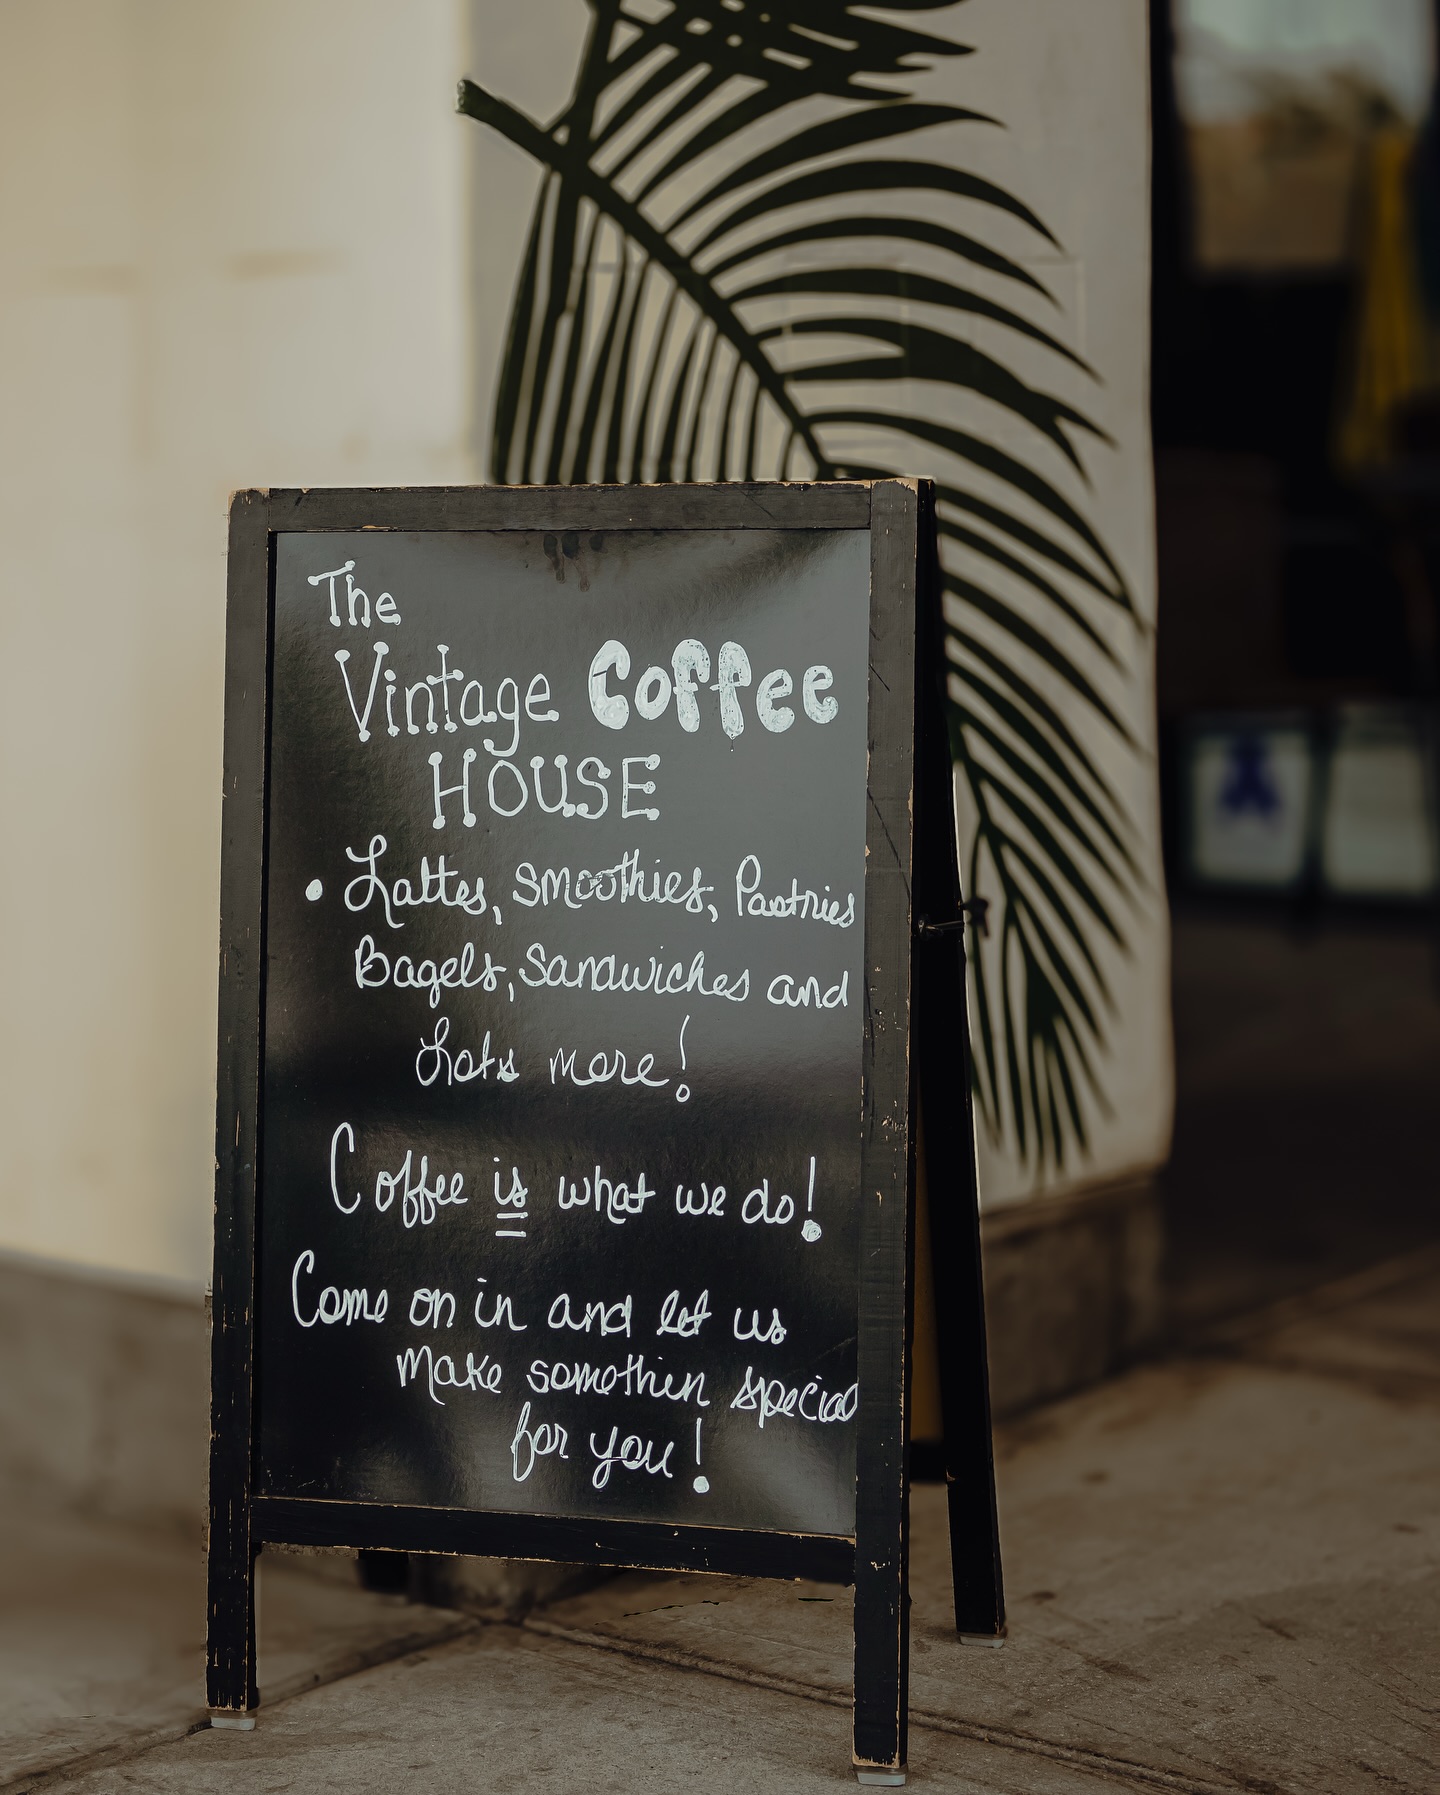 The
Vintage Coffee
HOUSE
• Lattes, Smoothies, Pastries
Bagels, Sandwiches and
Lots more!
Coffee is what we do!
Come on in and let us
make somethin special
for you!